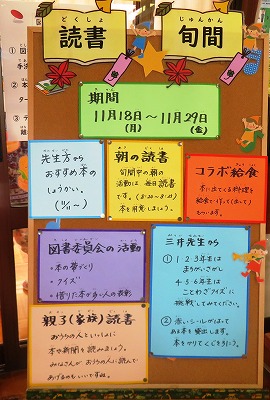 どくしょ
読書
じゅんかん
旬間
期間
11月18日～11月29日
(月)
(金)
先生方から
おすすめ本の
しょうかい。
朝の読書
旬間中の朝の
活動は毎日読書
です。(8:20～8:30)
本を用意しましょう。
コラボ給食
本に出てくる料理を
給食で作って出して
もらいます。
図書委員会の活動
・本の帯づくり
・クイズ
・借りた本が多い人の表彰
三井先生から
① 1・2・3年生は
まちがいさがし
4・5・6年生は
ことわざクイズに
挑戦してみてください。
② 赤いシールがはって
ある本を貸出します。
本をかりてくじを引こう。
親子(家族)読書
おうちの人といっしょに
本や新聞を読みましょう。
みなさんが、おうちの人に読んで
あげるのもいいですね。